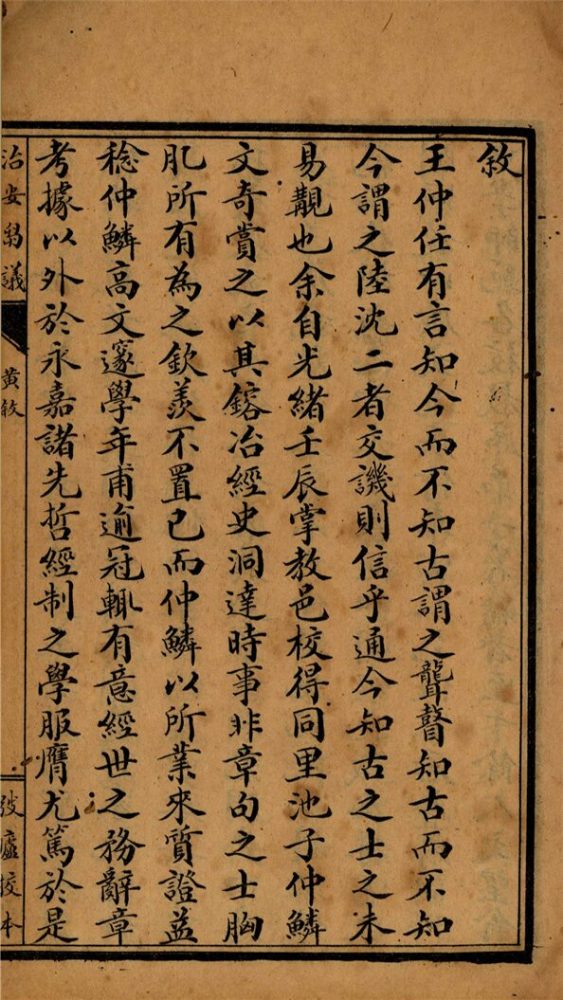 敘
王仲任有言知今而不知古謂之聾瞽知古而不知
今謂之陸沈二者交譏則信乎通今知古之士之未
易覯也余自光緒壬辰掌教邑校得同里池子仲鱗
文奇賞之以其鎔冶經史洞達時事非章句之士胸
肊所有為之欽羨不置已而仲鱗以所業來質證益
稔仲鱗高文邃學年甫逾冠輒有意經世之務辭章
考據以外於永嘉諸先哲經制之學服膺尤篤於是
治安芻議
黃敘
校本